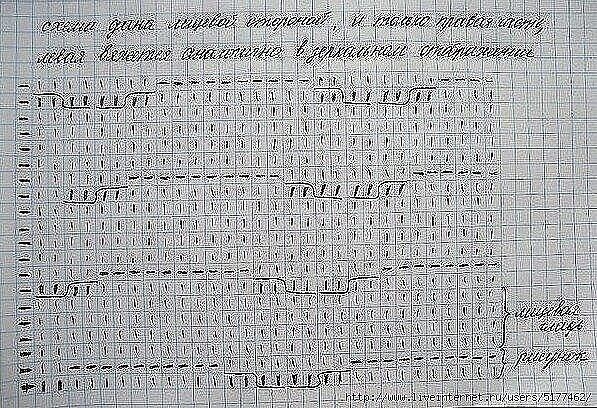 схема дана лицевой стороной, и только правая часть,
левая вяжется аналогично в зеркальном отображении
лицевая
гладь
рисунок
http://www.liveinternet.ru/users/5177462/